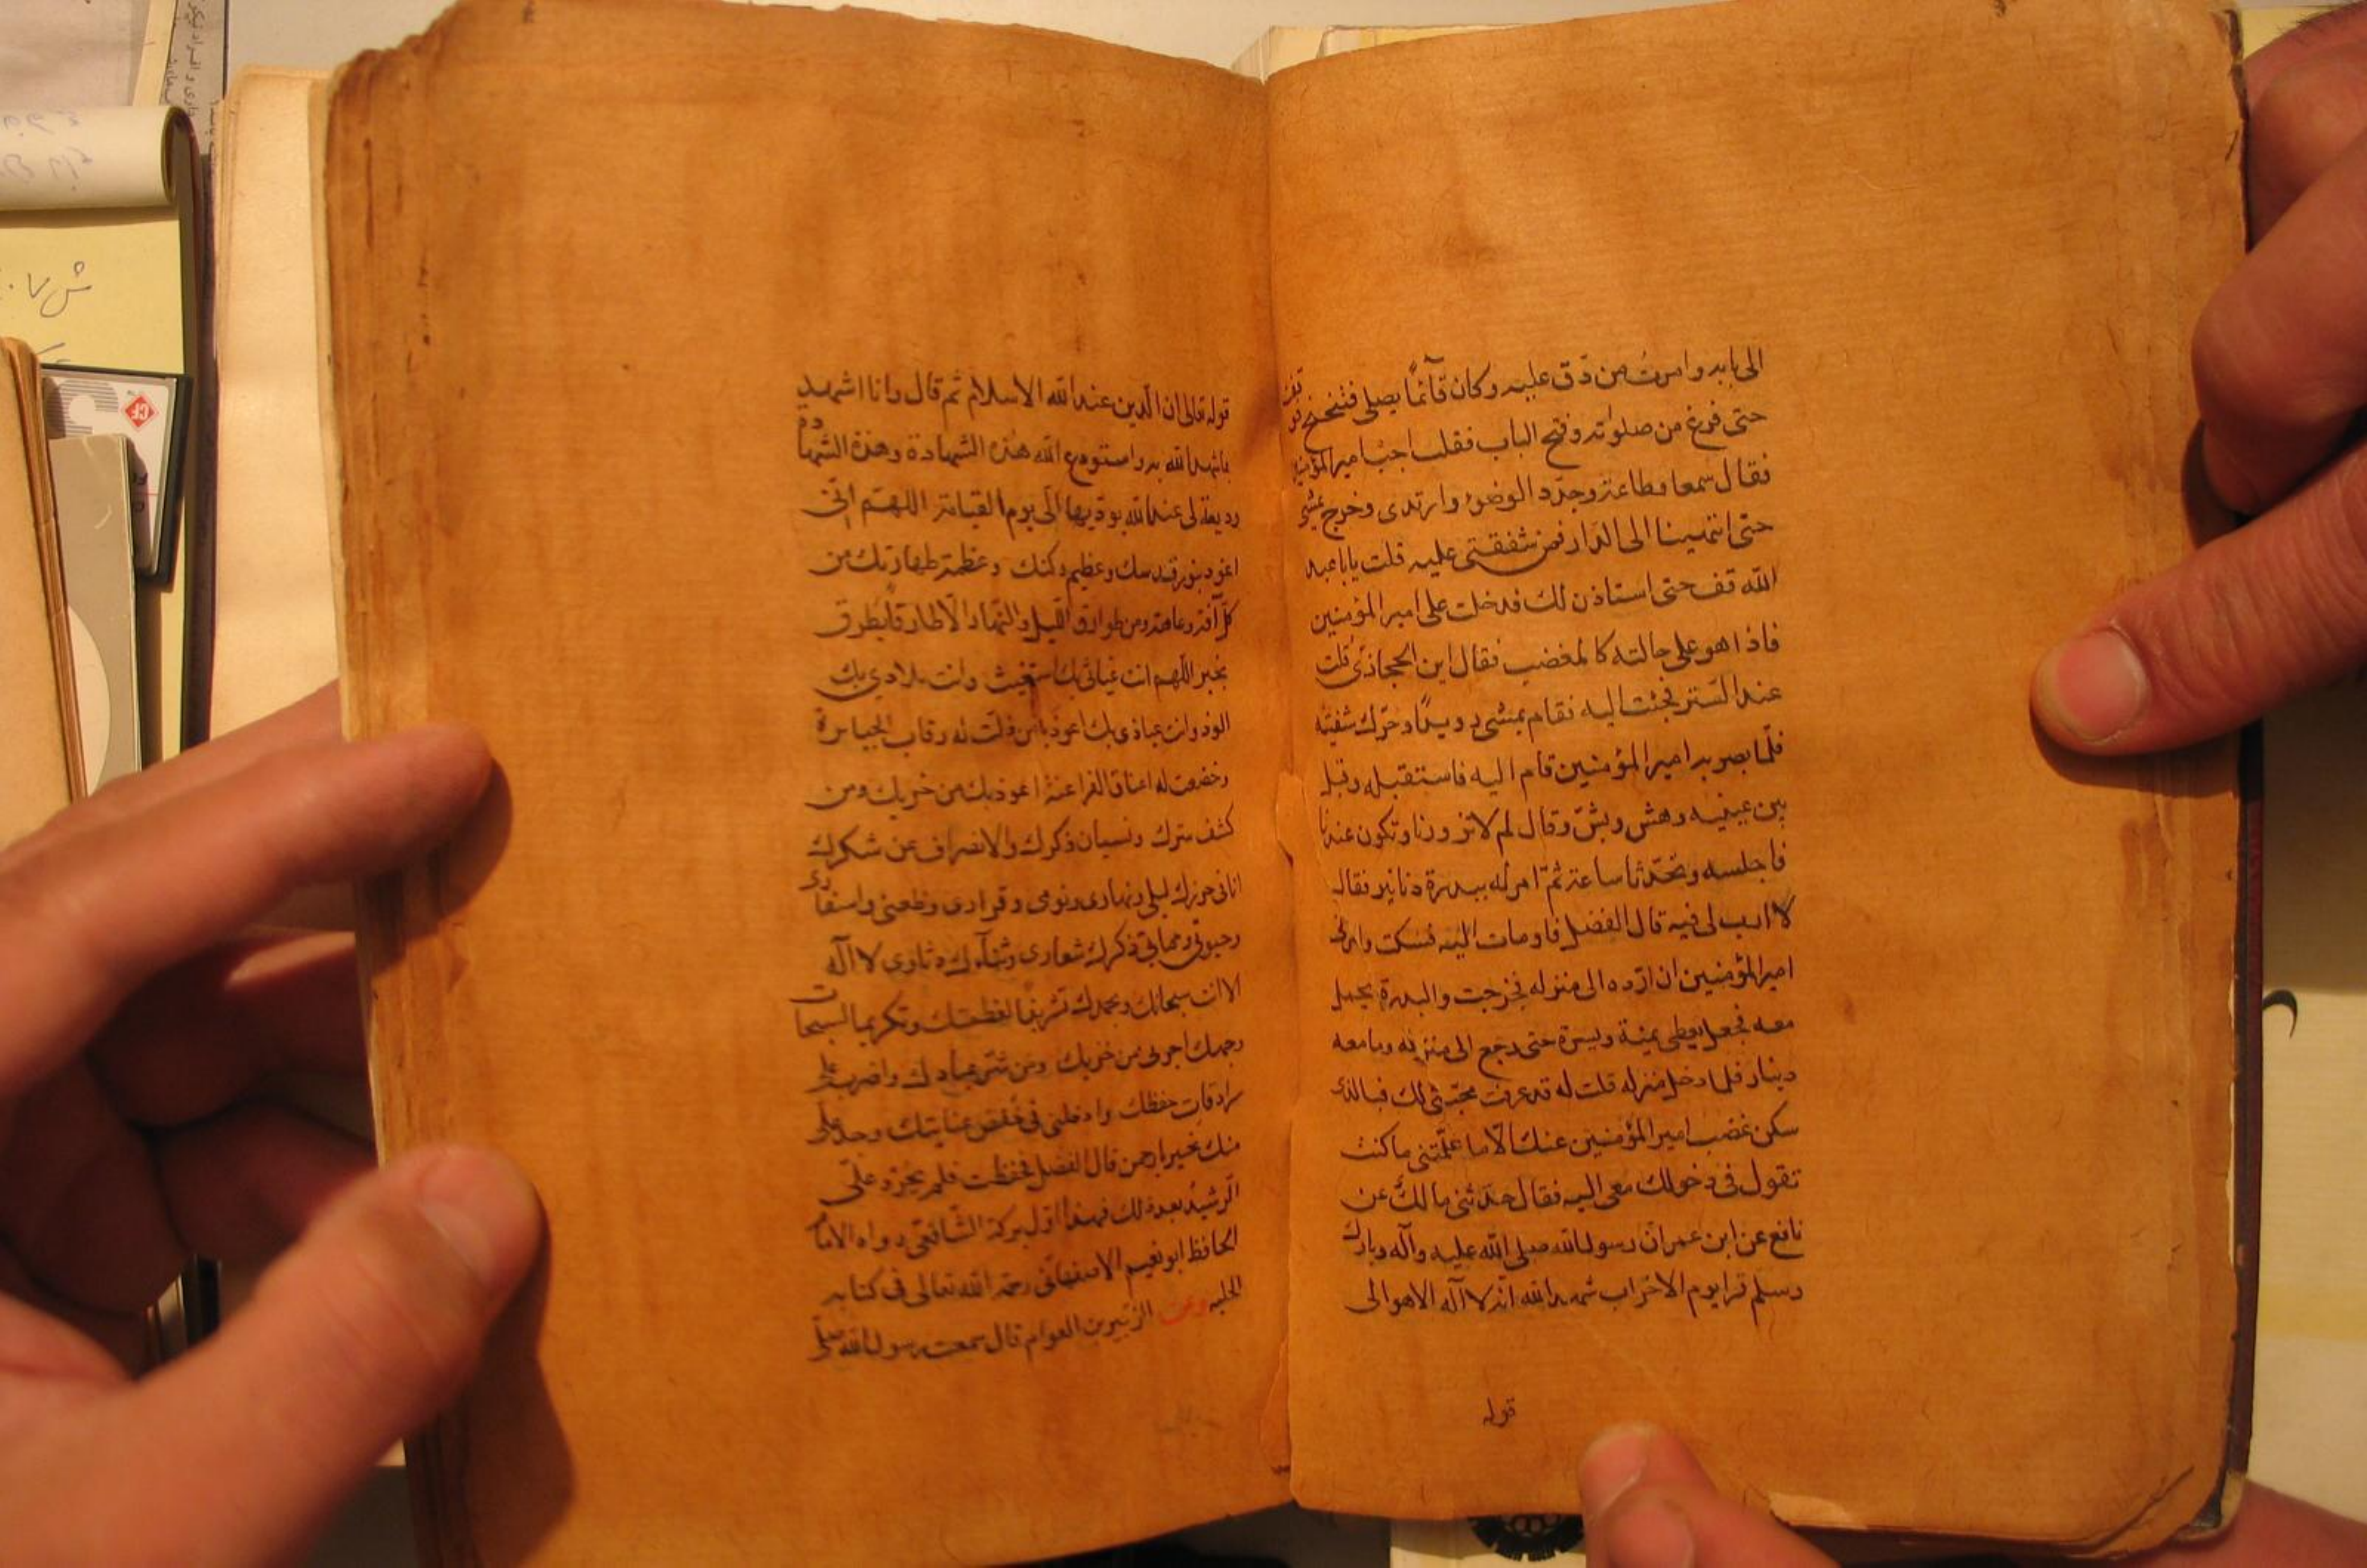 الى بابه وامرت من دق عليه وكان قآئماً يصلى فتنحنح
حتى فرغ من صلوته وفتح الباب فقلت اجب امير المؤمنين
فقال سمعا وطاعة وجدّد الوضوء وارتدى وخرج يمشى
حتى انتهينا الى الدار فمن شفقتى عليه قلت يابا عبد
الله قف حتى استاذن لك فدخلت على امير المؤمنين
فاذا هو على حالته كالمغضب فقال اين الحجازى قلت
عند الستر فجئت اليه فقام يمشى رويدًا وحرّك شفتيه
فلمّا بصر به امير المؤمنين قام اليه فاستقبله وقبل
بين عينيه وهش وبشّ وقال لم لا تزورنا وتكون عندنا
فاجلسه وتحدّثا ساعة ثمّ امر له ببدرة دنانير فقال
لا ارب لى فيه قال الفضل فاومات اليه فسكت وامرنى
امير المؤمنين ان اردّه الى منزله فخرجت والبدرة يحمل
معه فجعل يعطى يمنة ويسرة حتى رجع الى منزله وما معه
دينار فلما دخل منزله قلت له قد عرفت محبّتى لك فبالذى
سكن غضب امير المؤمنين عنك الّا ما علّمتنى ما كنت
تقول فى دخولك معى اليه فقال حدّثنى مالك عن
نافع عن ابن عمر ان رسول الله صلى الله عليه وآله وبارك
وسلم قرا يوم الاحزاب شهد الله انه لا آله الا هو الى
قوله
قوله تعالى ان الدين عند الله الاسلام ثم قال وانا اشهد
بما شهد الله به واستودع الله هذه الشهادة وهذه الشهادة
وديعة لى عند الله يوديها الى يوم القيامة اللهم انى
اعوذ بنور قدسك وعظيم ركنك وعظمة طهارتك من
كل آفة وعاهة ومن طوارق الليل والنهار الا طارقا يطرق
بخير اللهم انت غياثى بك استغيث وانت ملاذى بك
الوذ وانت عياذى بك اعوذ يا من ذلت له رقاب الجبابرة
وخضعت له اعناق الفراعنة اعوذ بك من خزيك ومن
كشف سترك ونسيان ذكرك والانصراف عن شكرك
انا فى حرزك ليلى ونهارى ونومى وقرارى وظعنى واسفارى
وحيوتى ومماتى ذكرك شعارى وثنآوك دثارى لا آله
الا انت سبحانك وبحمدك تشريفا لعظمتك وتكريما لسبحات
وجهك اجرنى من خزيك ومن شر عبادك واضرب على
سرادقات حفظك وادخلنى فى حفظ عنايتك وجد على
منك بخير يا رحمن قال الفضل فحفظت فلم يحرد علىّ
الرشيد بعد ذلك فهذا اول بركة الشافعى رواه الامام
الحافظ ابو نعيم الاصفهانى رحمه الله تعالى فى كتابه
الحليه وعن الزبير بن العوام قال سمعت رسول الله صلى